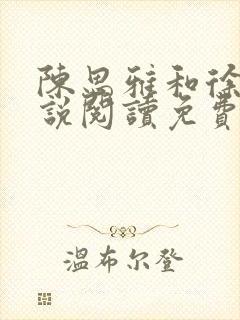 陳思雅和徐
說閱讀免費
溫布尔登